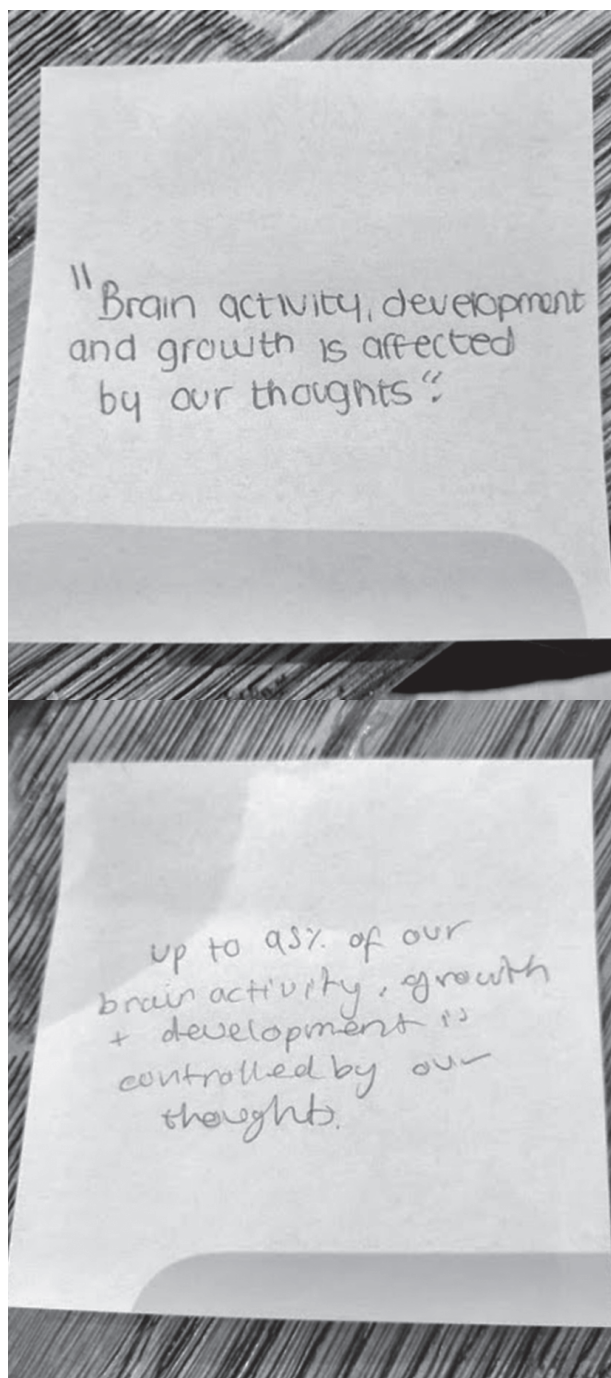 "Brain activity, development
and growth is affected
by our thoughts".
up to 95% of our
brain activity, growth
+ development is
controlled by our
thoughts.